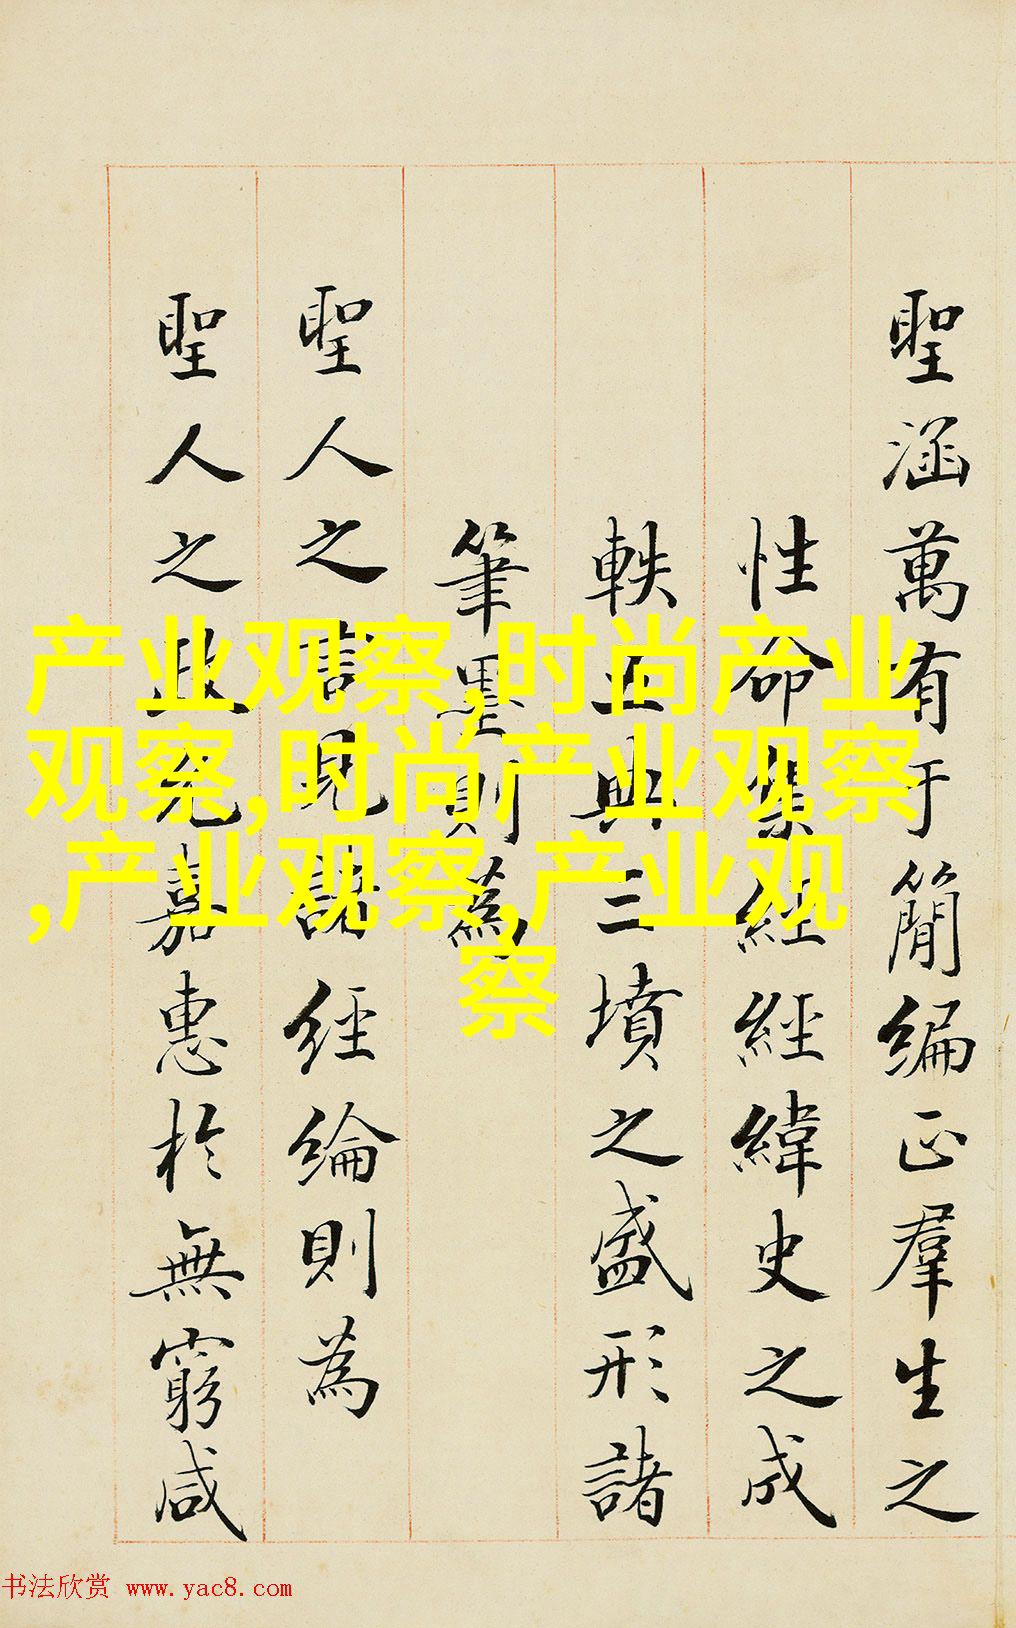 聖涵萬有于簡編正羣生之
性命集經經緯史之成
軼五典三墳之盛形諸
筆墨則為
聖人之言見諸經綸則為
聖人之嘉惠於無窮咸
产业观察,时尚产业
观察,时尚产业观察
,产业观察,产业观
察
书法欣赏 www.yac8.com